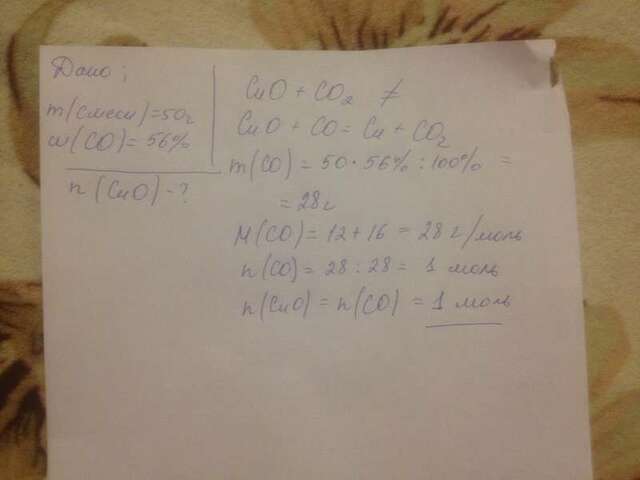 Дано:
m(смеси)=50г
w(CO)=56%
n(CuO)-?
CuO + CO₂ ≠
CuO + CO = Cu + CO₂
m(CO) = 50·56% : 100% =
= 28г
M(CO) = 12+16 = 28 г/моль
n(CO) = 28 : 28 = 1 моль
n(CuO) = n(CO) = 1 моль